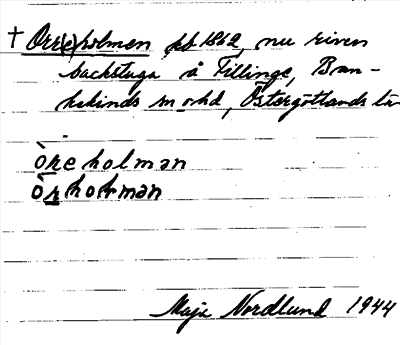 † Orr(e)holmen kb 1862, nu riven
backstuga å Fillinge, Ban-
kekinds sn o hd, Östergötlands län
òreholmən
òrholmən
Maja Nordlund 1944